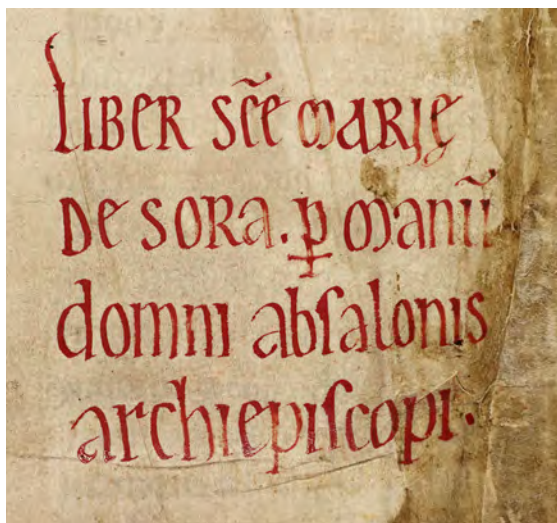 LIBER SC̄E MARIE
DE SORA. ꝑ MANŪ
domni abſalonis
archiepiſcopi.